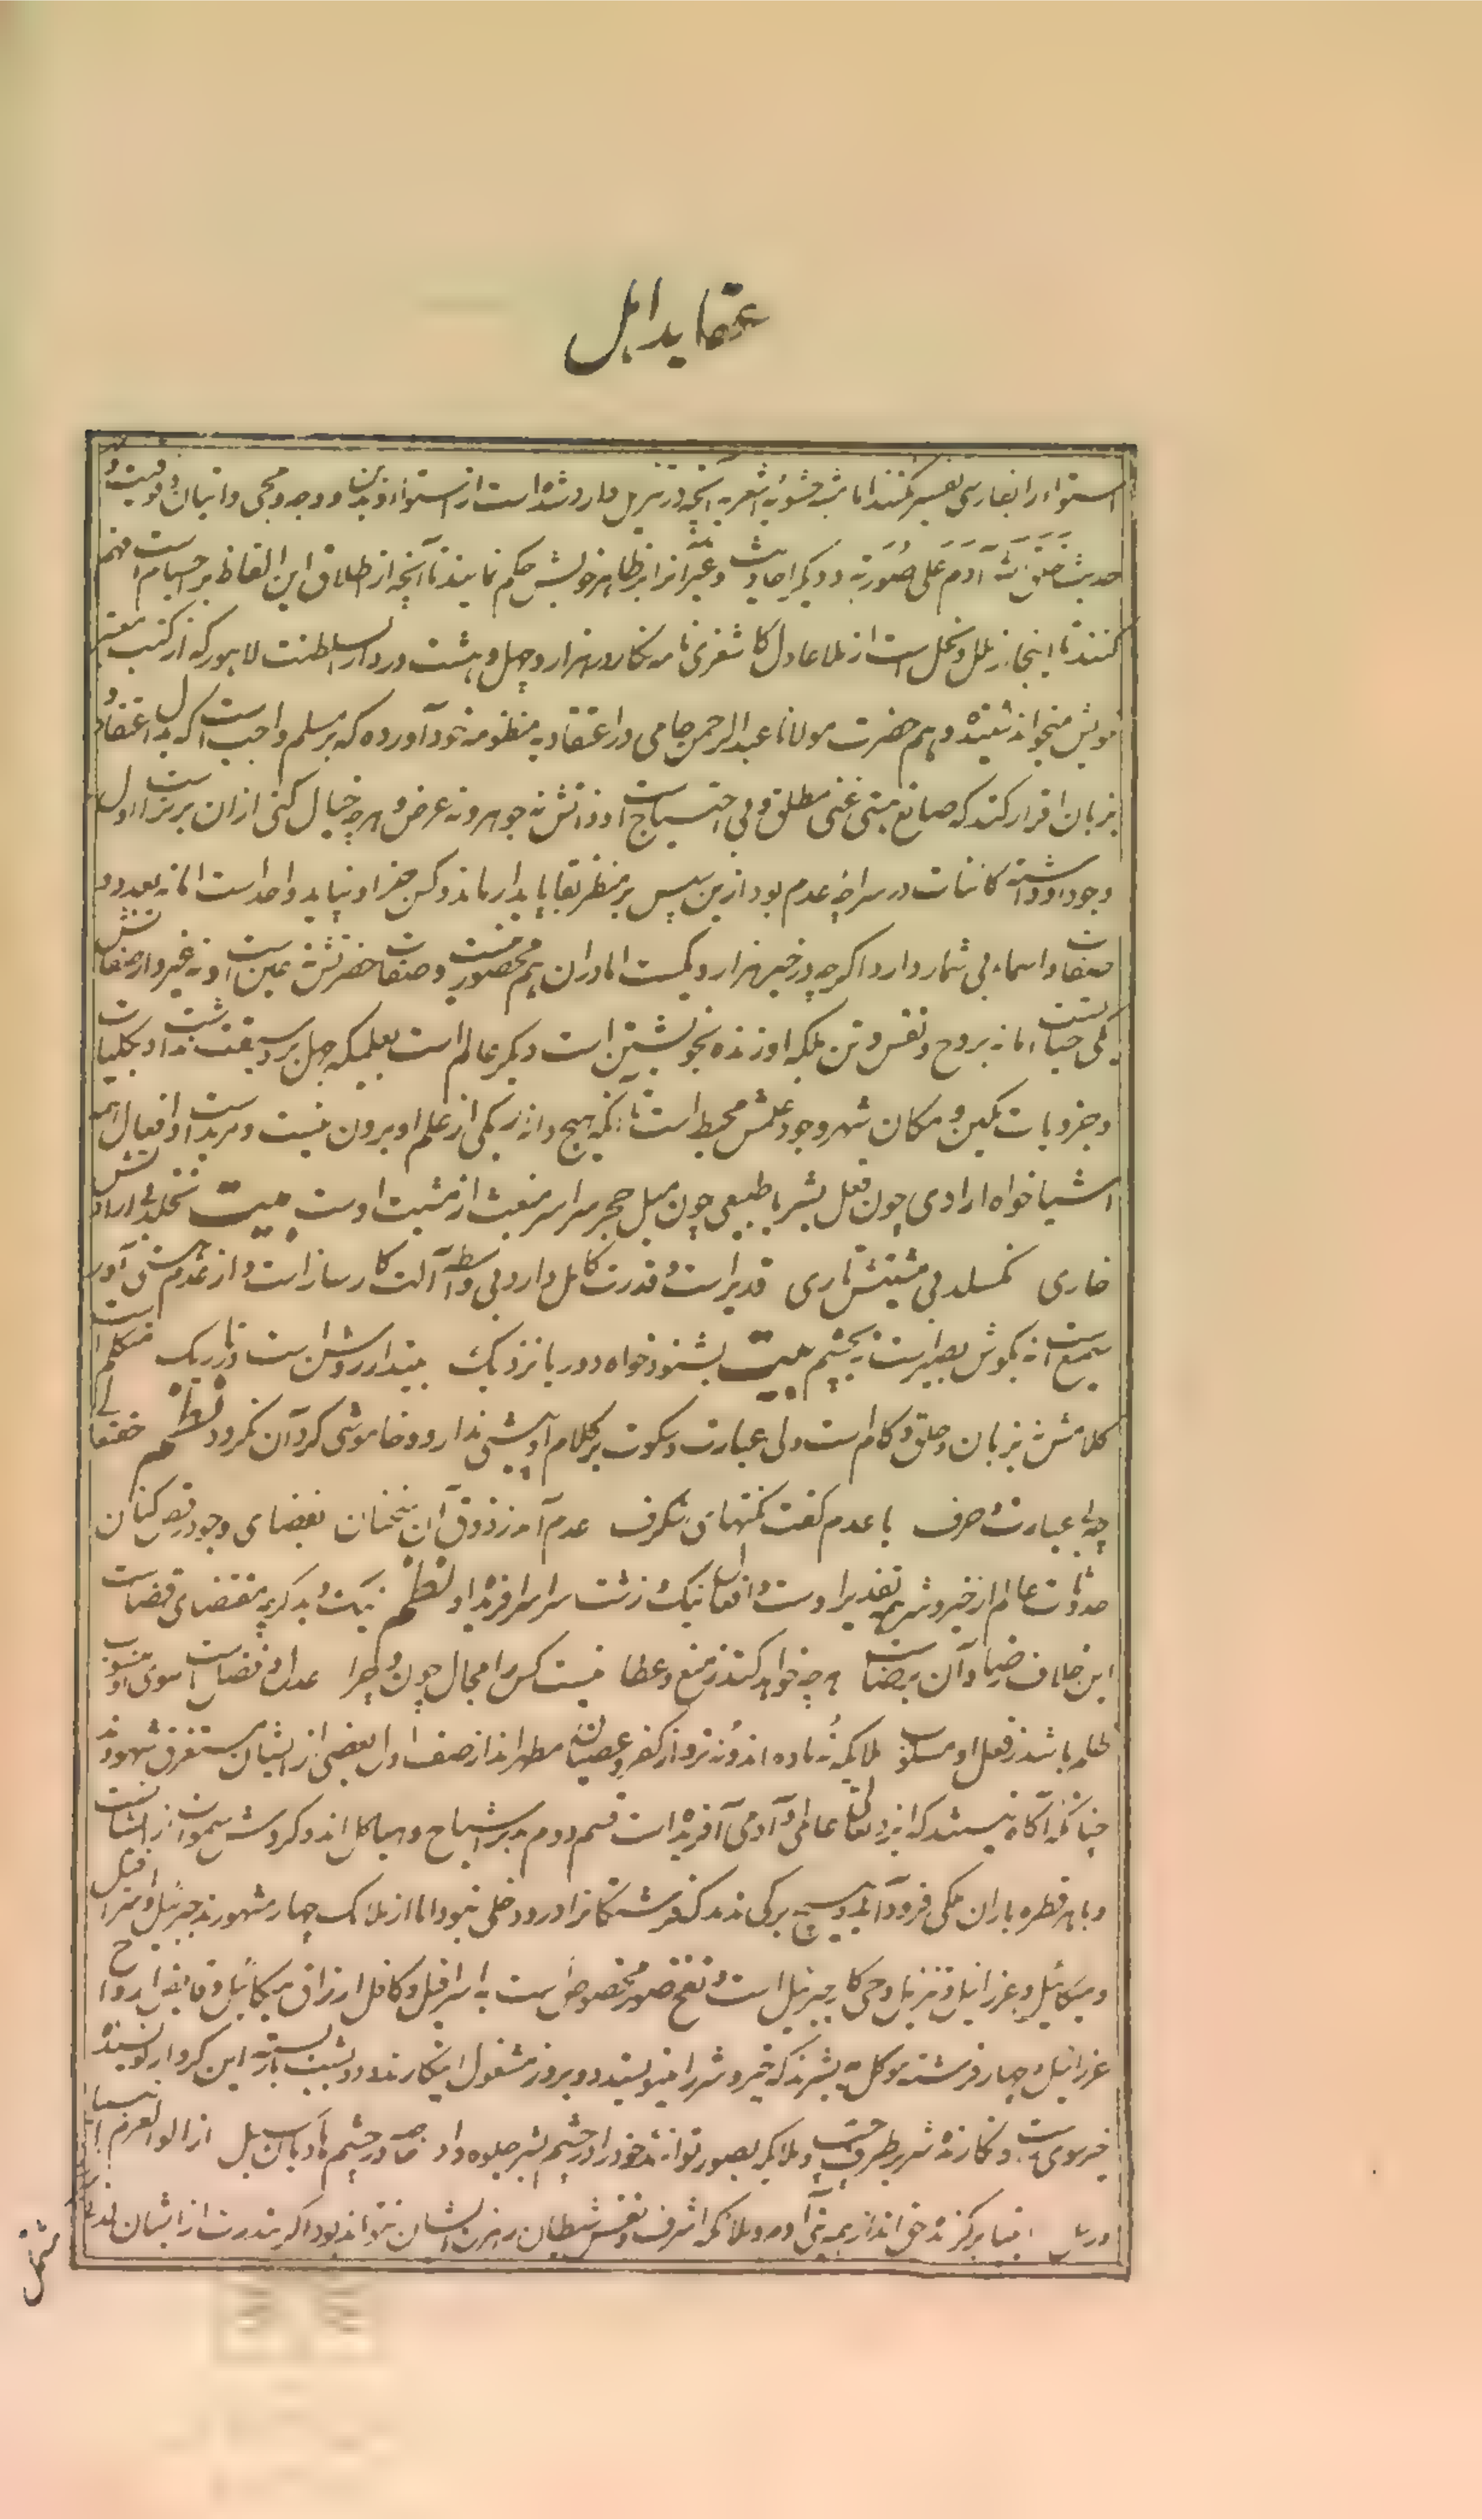 عقاید اهل
استواء را بفارسی تفسیر نکنند اما مشبهه حشویه اشعریه آنچه در تنزیل وارد شده است از استواء و یدین و وجه و مجی و اتیان و فوقیت و
حدیث خلق الله آدم علی صورته و دیگر احادیث و غیر آنرا بر ظاهر خویش حکم نمایند تا آنچه از اطلاق این الفاظ بر اجسام است فهم
کنند تا اینجا از ملل و نحل است از ملا عادل کاشغری نامه نگار در هزار و چهل و هشت در دار السلطنت لاهور که از کتب معتبر
خویش میخواند شنیده و هم حضرت مولانا عبد الرحمن جامی در اعتقادیه منظومه خود آورده که بر مسلم واجب است که بدل اعتقاد و
بزبان اقرار کند که صانع هستی غنی مطلق و بی احتیاج است و ذاتش نه جوهر و نه عرض و هرچه خیال کنی ازان برتر است اول
وجود او داشته کائنات در سراچه عدم بود ازین سپس بر منظر بقا پایدار ماند و کس جز او نپاید واحد است اما نه بعدد و
صفات و اسماء بی شمار دارد اگرچه در خبر هزار و یکست اما دران هم محصور نیست و صفات حضرتش نه عین است و نه غیر و از صفاتش
یکی حیات اما نه بروح و نفس و تن بلکه او زنده بخویشتن است دیگر عالم است بعلمیکه جهل برو سبقت نداشته و بکلیات
و جزویات مکین و مکان شهر وجود علمش محیط است تا آنکه هیچ دانه ریگی از علم او برون نیست و مرید است و افعال همه
اشیا خواه ارادی چون فعل بشر یا طبیعی چون میل حجر سراسر منبعث از مشیت اوست بیت نخلد بی ارادتش
خاری نگسلد بی مشیتش تاری قدیر است و قدرت کامل دارد بی واسطه آلت کارساز است و از عدم هستی آور
سمیع است نه بگوش بصیر است نه بچشم بیت بشنود خواه دور یا نزدیک بیند ار روشن است و تاریک متکلم است
کلامش نه بزبان و حلق و کام است ولی عبارت و سکوت بر کلام او پیشی ندارد و خاموشی گرد آن نگردد نظم حقتعالی
چه بی عبارت و حرف با عدم گفت نکتهای شگرف عدم آمد ز ذوق آن سخنان بفضای وجود رقص کنان
حدوثات عالم از خیر و شر همه بتقدیر اوست و افعال نیک و زشت سراسر آفریده او نظم نیک و بد گرچه مقتضای قضاست
این خلاف رضا و آن برضاست هرچه خواهد کند ز منع و عطا نیست کس را مجال چون و چرا عدل و فضلست سوی او منسوب
ظلم باشد ز فعل او مسلوب ملائکه نه ماده اند و نه نر و از کفر و عصیان مطهر اند از صنف اول بعضی از ایشان مستغرق شهودند
چنانکه آگاه نیستند که ایزد تعالی عالمی و آدمی آفریده است قسم دوم مدبر اشباح و هیاکل اند و گردش سموات از ایشانست
و با هر قطره باران ملکی فرود آید و هیچ برگی ندمد که فرشتگانرا درو دخلی نبود اما از ملائک چهار مشهورند جبرئیل و اسرافیل
و میکائیل و عزرائیل و تنزیل وحی کار جبرئیل است و نفخ صور مخصوص است به اسرافیل و کافل ارزاق میکائیل و قابض ارواح
عزرائیل و چهار فرشته موکل بشرند که خیر و شر را مینویسند دو بروز مشغول اینکارند دو بشب بازبسته این کردار نویسنده
خیر سوی راست و نگارنده شر بطرف چپ و ملائکه بصور توانند خود را در چشم بشر جلوه داد خاصه در چشم هادیان سبل از اولو العزم انبیا
و رسل انبیا برگزیده حق اند از همه بنی آدم و ملائکه اشرف و نفس و شیطان رهزن ایشان نتواند بود اگر بندرت از ایشان لغزشی